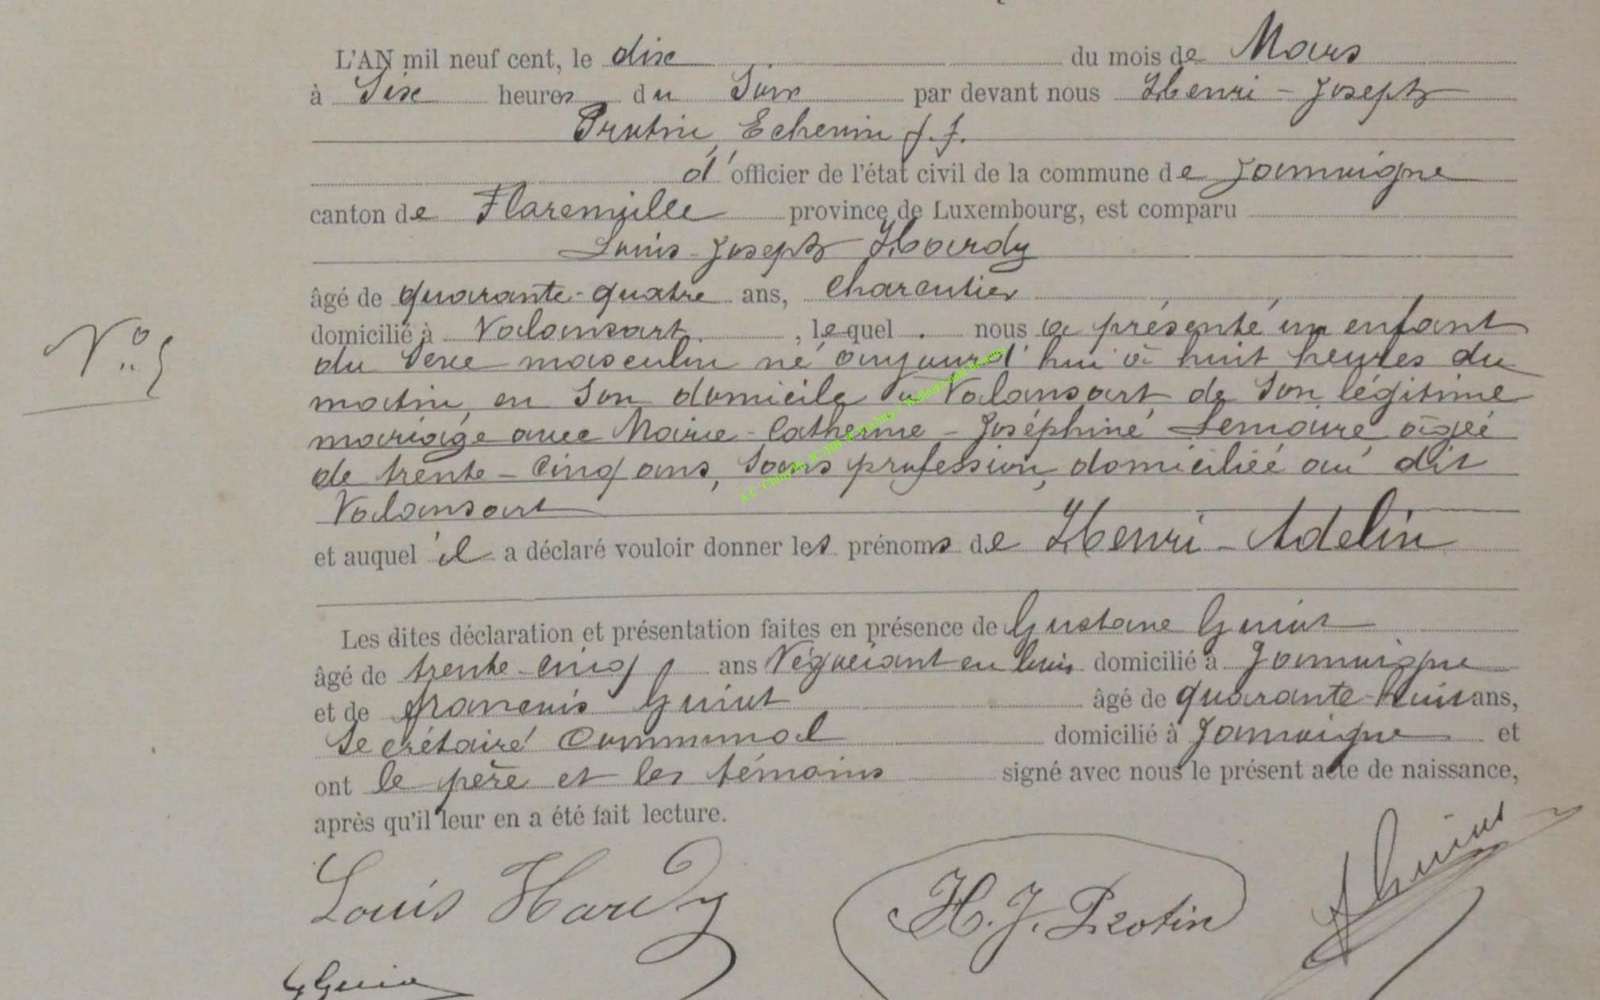 L'AN mil neuf cent, le dix du mois de Mars
à Six heures du Soir par devant nous Henri-Joseph
Protin, Echevin f.f.
d'officier de l'état civil de la commune de Jamoigne
canton de Florenville province de Luxembourg, est comparu
Louis-Joseph Hardy
âgé de quarante-quatre ans, Charcutier
domicilié à Valansart, lequel nous a présenté un enfant
du Sexe masculin né aujourd'hui à huit heures du
matin, en Son domicile à Valansart de Son légitime
mariage avec Marie-Catherine-Joséphine Lemaire âgée
de trente-cinq ans, Sans profession, domiciliée au dit
Valansart
et auquel il a déclaré vouloir donner les prénoms de Henri-Adelin
N° 5
Les dites déclaration et présentation faites en présence de Gustave Guiot
âgé de trente-cinq ans Négociant en bois domicilié à Jamoigne
et de François Guiot âgé de quarante-huit ans,
Secrétaire Communal domicilié à Jamoigne et
ont le père et les témoins signé avec nous le présent acte de naissance,
après qu'il leur en a été fait lecture.
Louis Hardy H. J. Protin Guiot